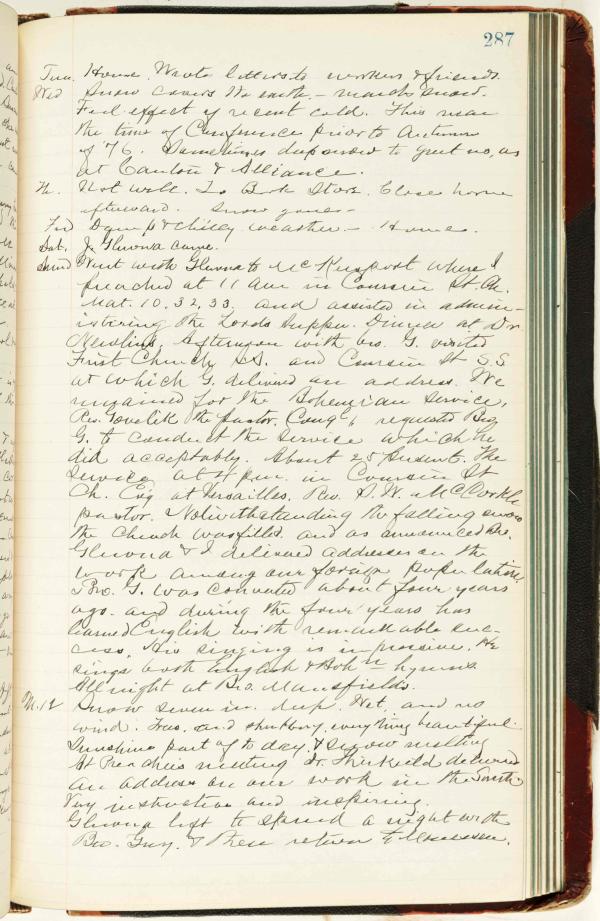 287
Tues. Home. Wrote letters to workers & friends.
Wed Snow covers the earth – March snow.
Feel effect of recent cold. This near
the time of Conference prior to Autumn
of '76. Sometimes disposed to greet us, as
at Canton & Alliance.
Th. Not well. To Book Store. Close home
afterward. Snow gone –
Fri Damp & chilly weather – Home.
Sat. J. came.
Sund Went with to McKeesport where I
preached at 11 am in Coursin St. Ch.
Mat. 10.32,33. and assisted in admin-
istering the Lords Supper. Dinner at Dr
Afternoon with bro. G. visited
First Church S.S. and Coursin St S.S
at which G. delivered an address. We
remained for the Bohemian Service,
Rev. the pastor, Cong'l, requested Bro
G. to conduct the service which he
did acceptably. About 25 present. The
service at 4 p.m. in Coursin St
Ch. Evg at Versailles. Rev. McCorkle
pastor. Notwithstanding the falling snow
the Church was filled and as announced Bro.
& I delivered addresses on the
work among our foreign population
Bro. G. was converted about four years
ago and during the four years has
learned English with remarkable suc-
cess. His singing is impressive. He
sings both English & Boh'n hymns
All night at Bro. Mansfield's.
M. 12 Snow seven in. deep. Wet, and no
wind. Trees and shrubbery, everything beautiful.
Sunshine part of to day, & snow melting
At Preachers meeting Dr. Thirkield delivered
an address on our work in the South
Very instructive and inspiring.
left to spend a night with
Bro. & then return to